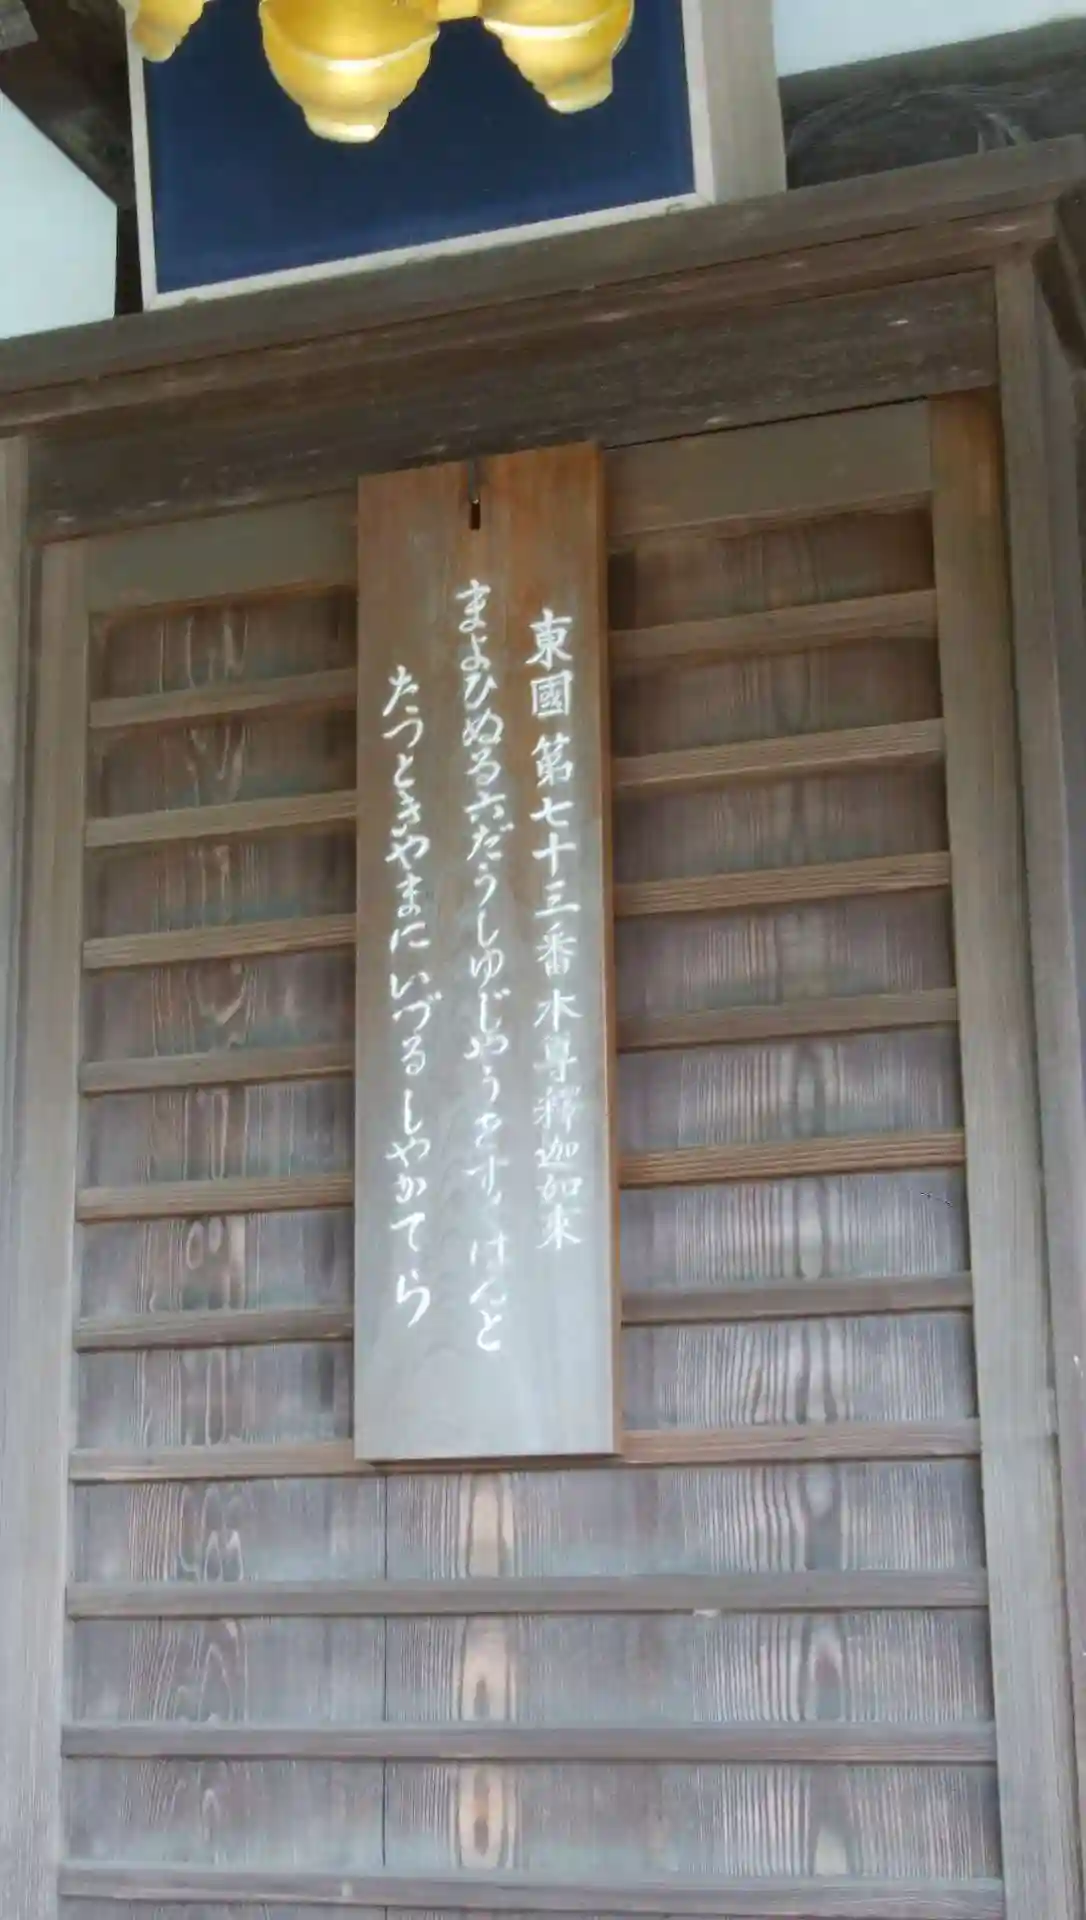 東國第七十三番本尊釋迦如来
まよひぬる六だうしゆじやうすくはんと
たつときやまにいづるしやかてら